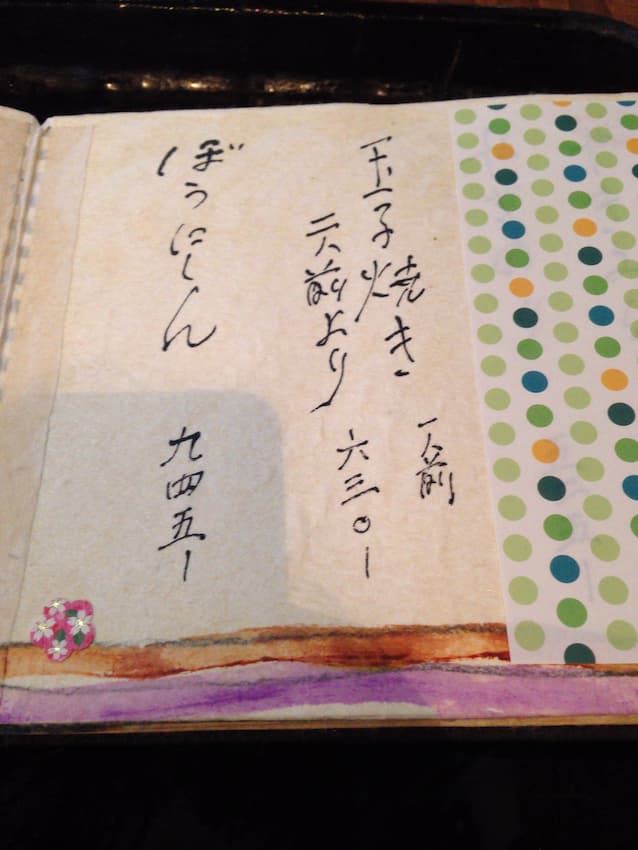 玉子焼き
一人前
二人前より
六三〇ー
ぼうにしん
九四五ー